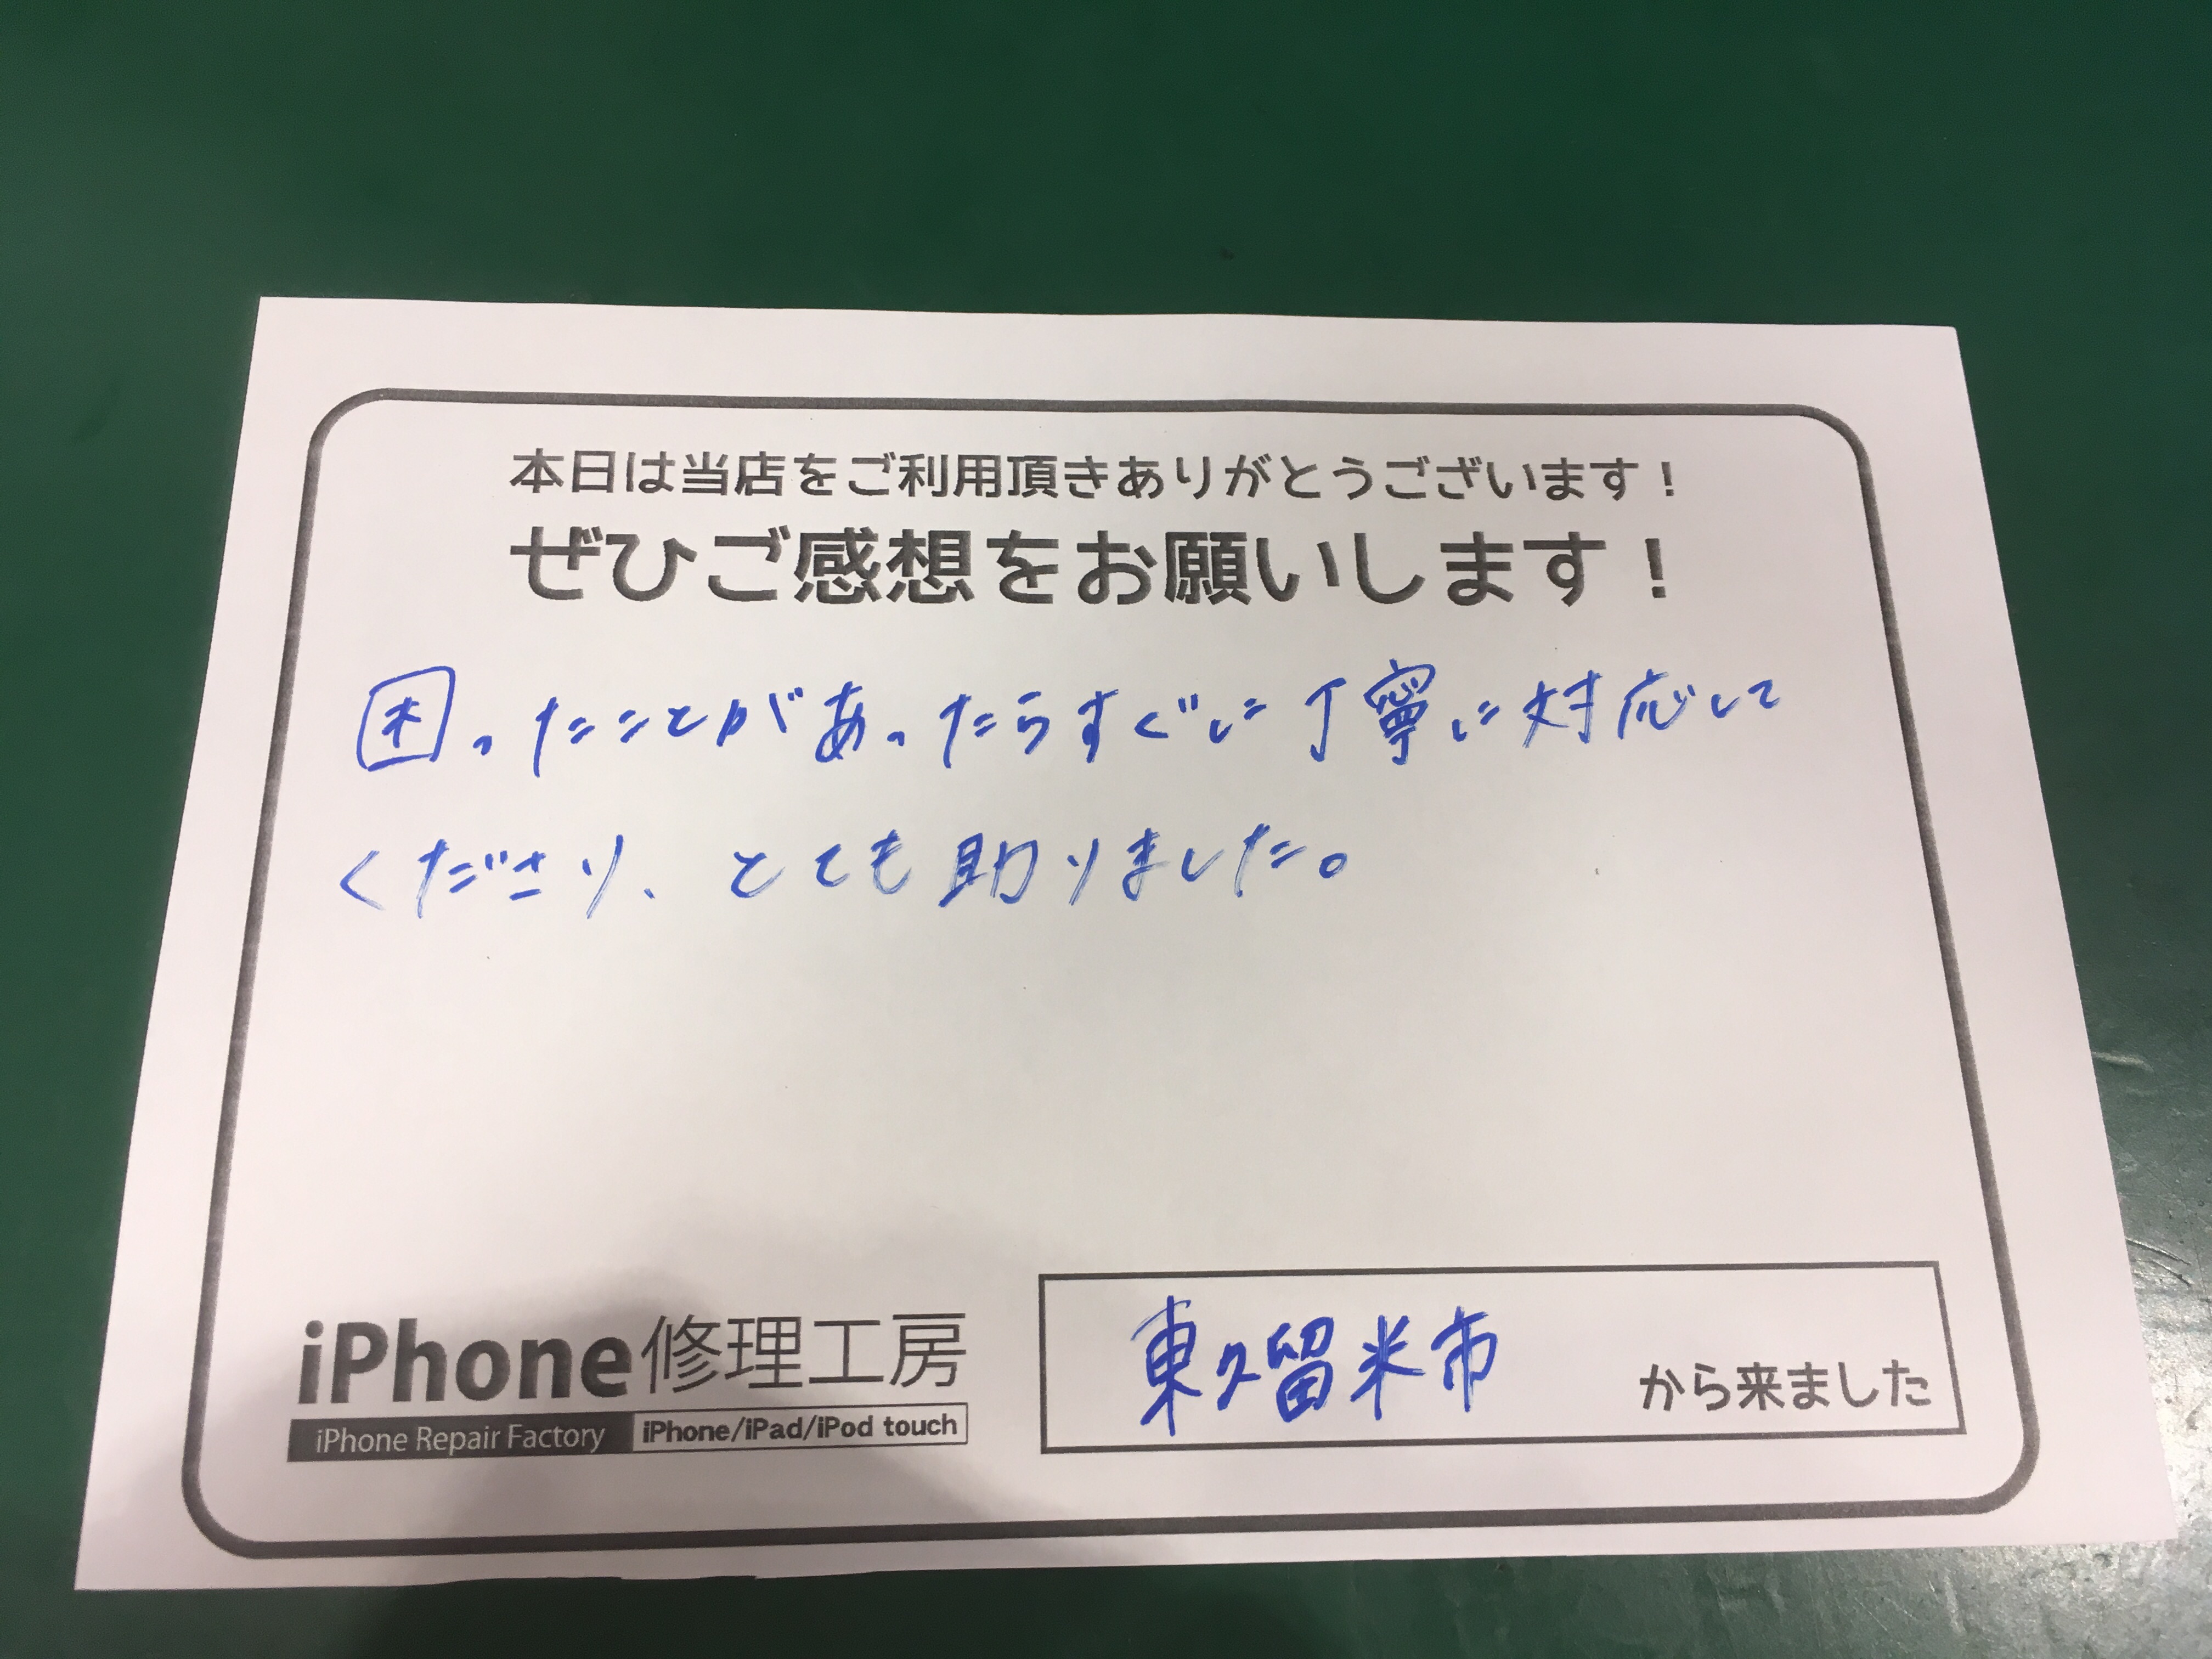 本日は当店をご利用頂きありがとうございます！
ぜひご感想をお願いします！
困ったことがあったらすぐに丁寧に対応して
くださり、とても助りました。
iPhone修理工房
iPhone Repair Factory iPhone/iPad/iPod touch
東久留米市 から来ました